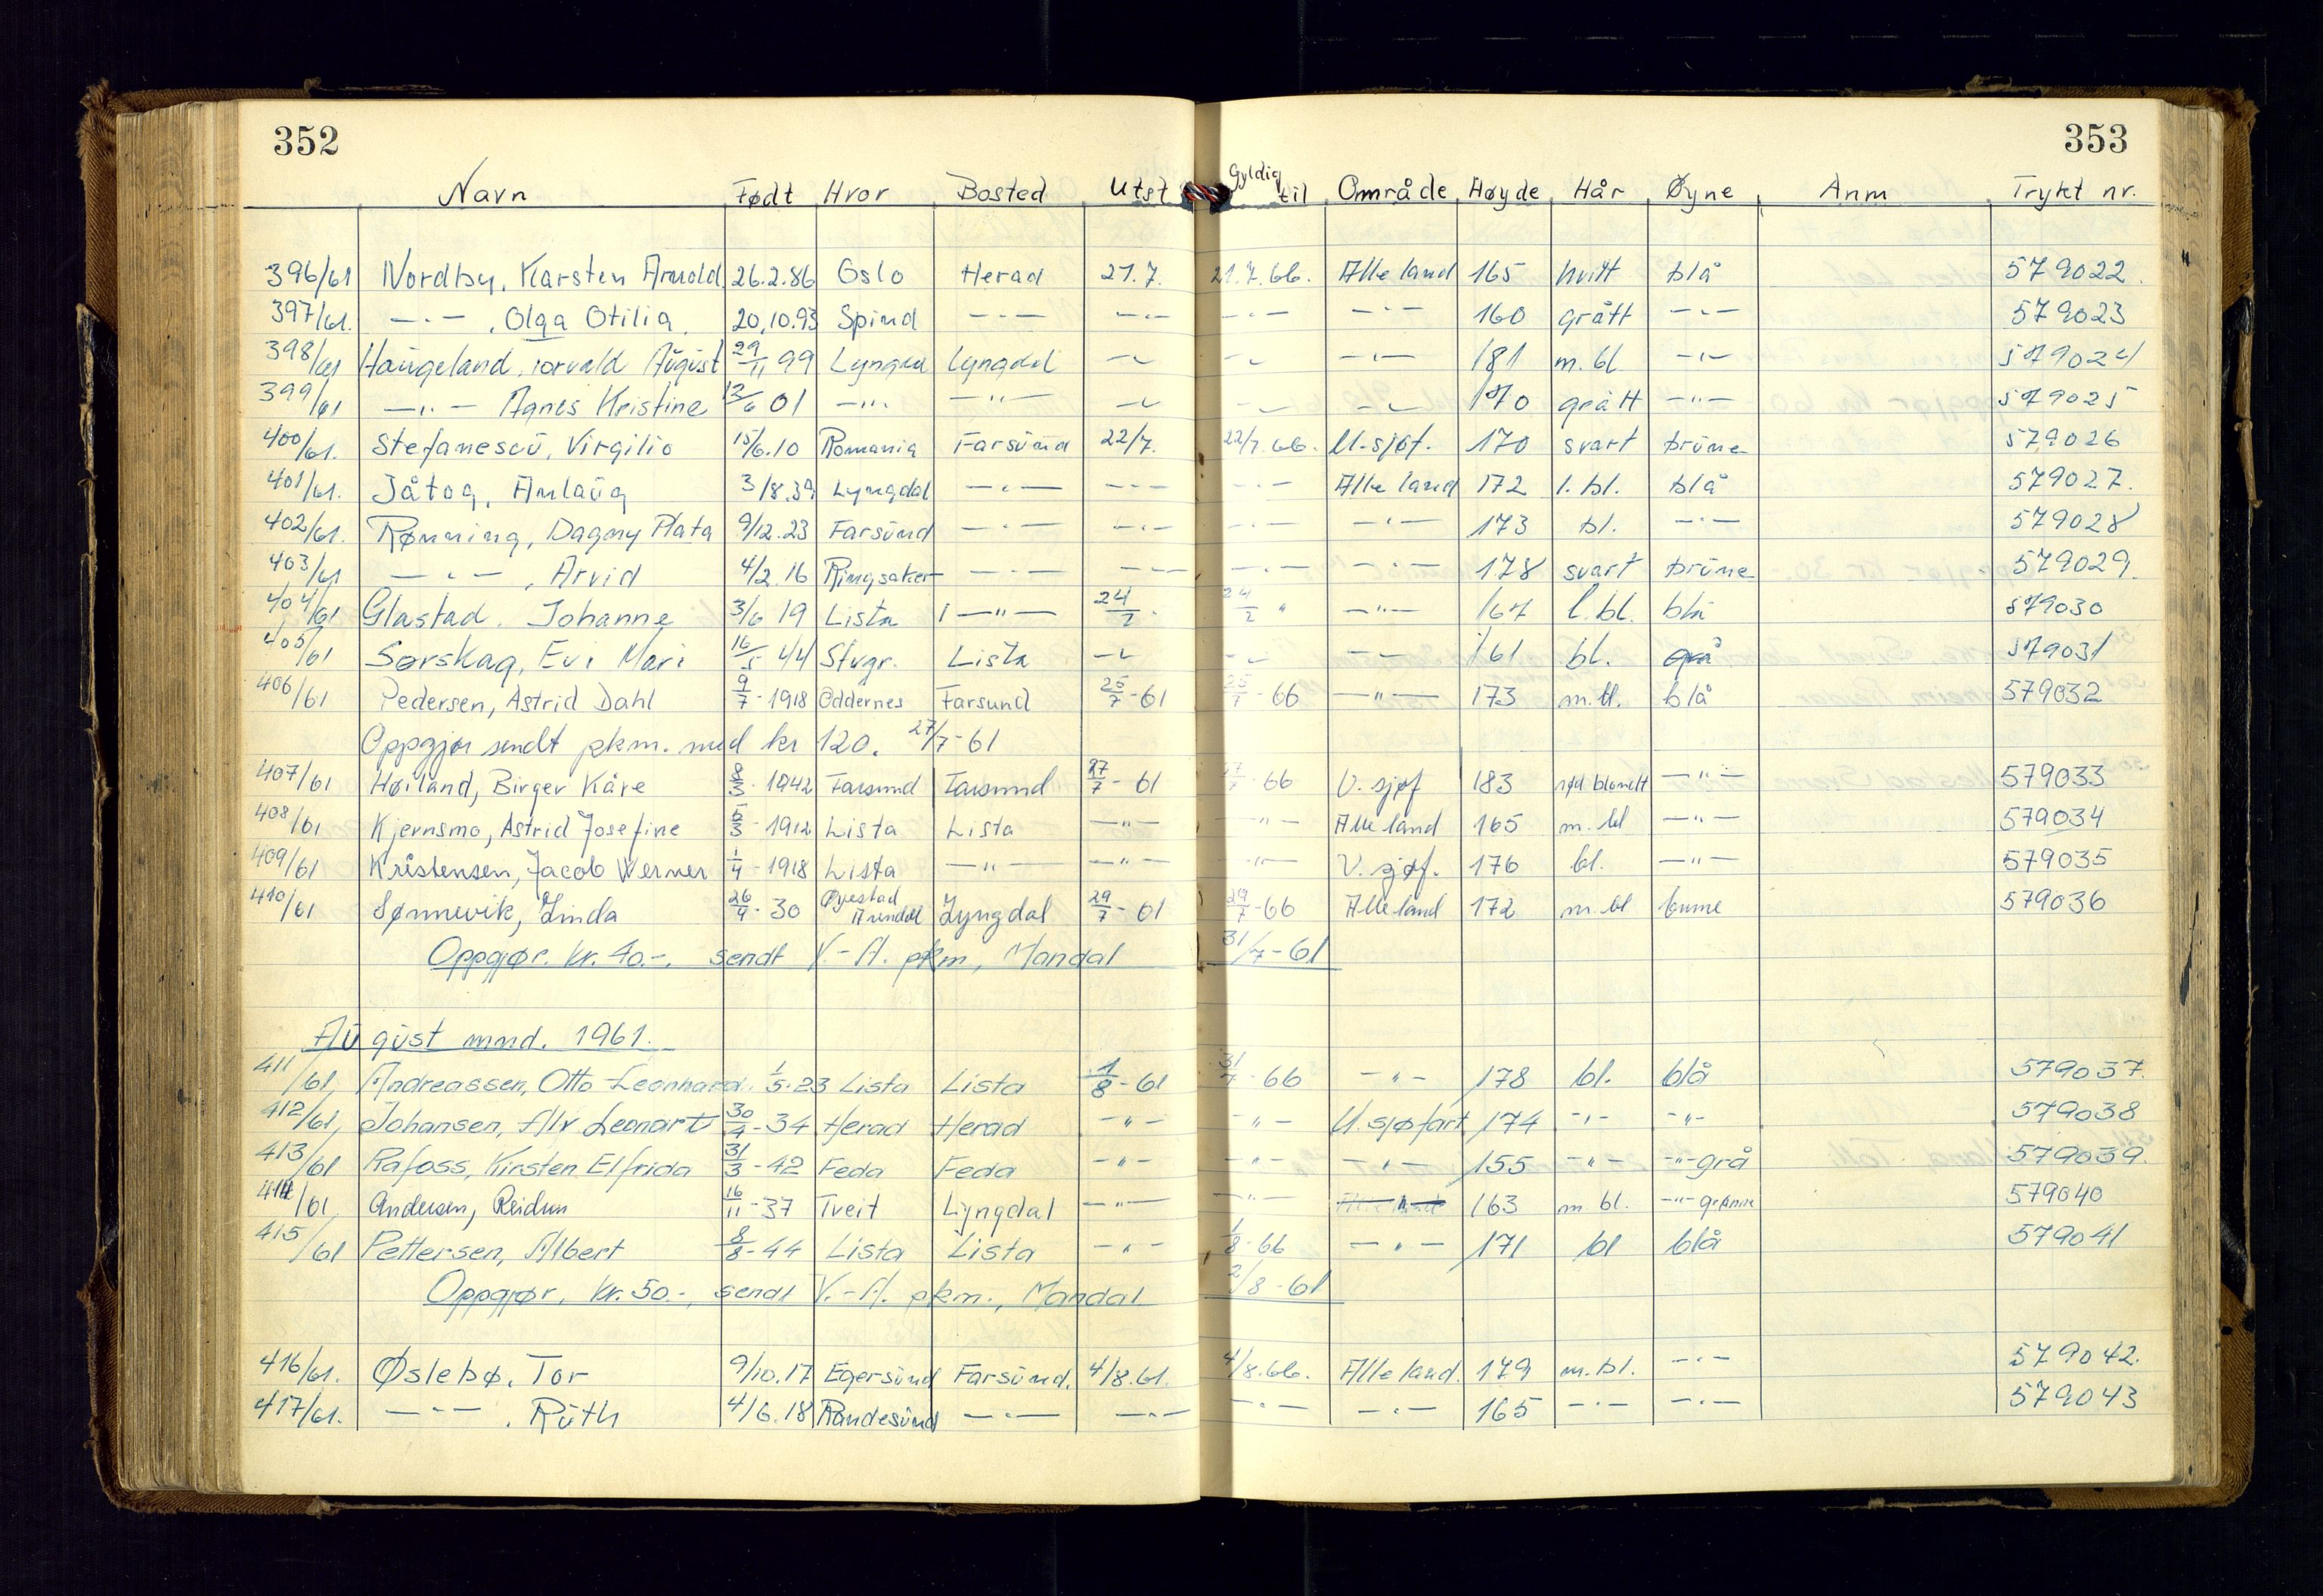 352
353
Navn Født Hvor Bosted Utst. Gyldig til Område Høyde Hår Øyne Anm Trykt nr.
396/61 Nordby, Karsten Arnold 26.2.86 Oslo Herad 21.7. 21.7.66. Alle land 165 hvitt blå 579022.
397/61. —·— , Olga Otilia. 20.10.93 Spind —·— —·— —·— —·— 160 grått —·— 579023
398/61 Haugeland, Torvald August 29/11 99 Lyngdal Lyngdal —〃— —〃— —·— 181 m. bl —·— 579024
399/61 —〃— Agnes Kristine 12/6 01 —〃— —〃— —〃— —〃— —〃— 170 grått —〃— 579025
400/61. Stefanescu, Virgilio 15/6.10 Romania Farsund 22/7. 22/7.66. U-sjøf. 170 svart brune 579026
401/61. Jåtog, Anlaug 3/8.39 Lyngdal —·— —·— —·— Alle land 172 l. bl. blå 579027.
402/61. Rønning, Dagny Plata 9/12.23 Farsund —·— —·— —·— —·— 173 bl. —·— 579028
403/61 —·— , Arvid 4/2.16 Ringsaker —·— —·— —·— —·— 178 svart brune 579029.
404/61 Glastad. Johanne 3/6 19 Lista —〃— 24/7 24/7 〃 —〃— 167 l. bl. blå 579030
405/61 Sørskag, Evi Mari 16/5 44 Stvgr. Lista —〃— —〃— —〃— 161 bl. grå 579031
406/61 Pedersen, Astrid Dahl 9/7-1918 Oddernes Farsund 25/7-61 25/7-66 —〃— 173 m. bl. blå 579032
Oppgjør sendt pkm. med kr 120. 27/7-61
407/61 Høiland, Birger Kåre 8/3-1942 Farsund Farsund 27/7-61 27/7-66 U. sjøf 183 rød blondt —〃— 579033
408/61 Kjernsmo, Astrid Josefine 5/3-1912 Lista Lista —〃— —〃— Alle land 165 m. bl —〃— 579034
409/61 Kristensen, Jacob Werner 1/4-1918 Lista —〃— —〃— —〃— U. sjøf. 176 bl. —〃— 579035
410/61 Sønnevik, Linda 26/9-30 Øyestad Arendal Lyngdal 29/7-61 29/7-66 Alle land 172 m. bl brune 579036
Oppgjør. kr. 40.-. sendt V.-A. pkm, Mandal 31/7-61
August mnd. 1961.
411/61, Andreassen, Otto Leonhard. 1/5-23 Lista Lista 1/8-61 31/7-66 —〃— 178 bl. blå 579037.
412/61, Johansen, Alv Leonart 30/4-34 Herad Herad —〃— —〃— U. sjøfart 174 —〃— —〃— 579038
413/61 Rafoss, Kirsten Elfrida 31/3-42 Feda Feda —〃— —〃— —〃— 155 —〃— —〃—grå 579039.
414/61 Andersen, Reidun 16/11-37 Tveit Lyngdal —〃— —〃— 163 m. bl. —〃—grønne 579040
415/61 Pettersen, Albert 8/8-44 Lista Lista —〃— 1/8-66 —〃— 171 bl blå 579041
Oppgjør, kr. 50.-, sendt V.-A. pkm., Mandal 2/8-61
416/61. Øslebø, Tor 9/10.17 Egersund Farsund. 4/8.61. 4/8.66. Alle land. 179 m. bl. —·— 579042.
417/61. —·— , Ruth 4/6.18 Randesund —·— —·— —·— —·— 165 —·— —·— 579043